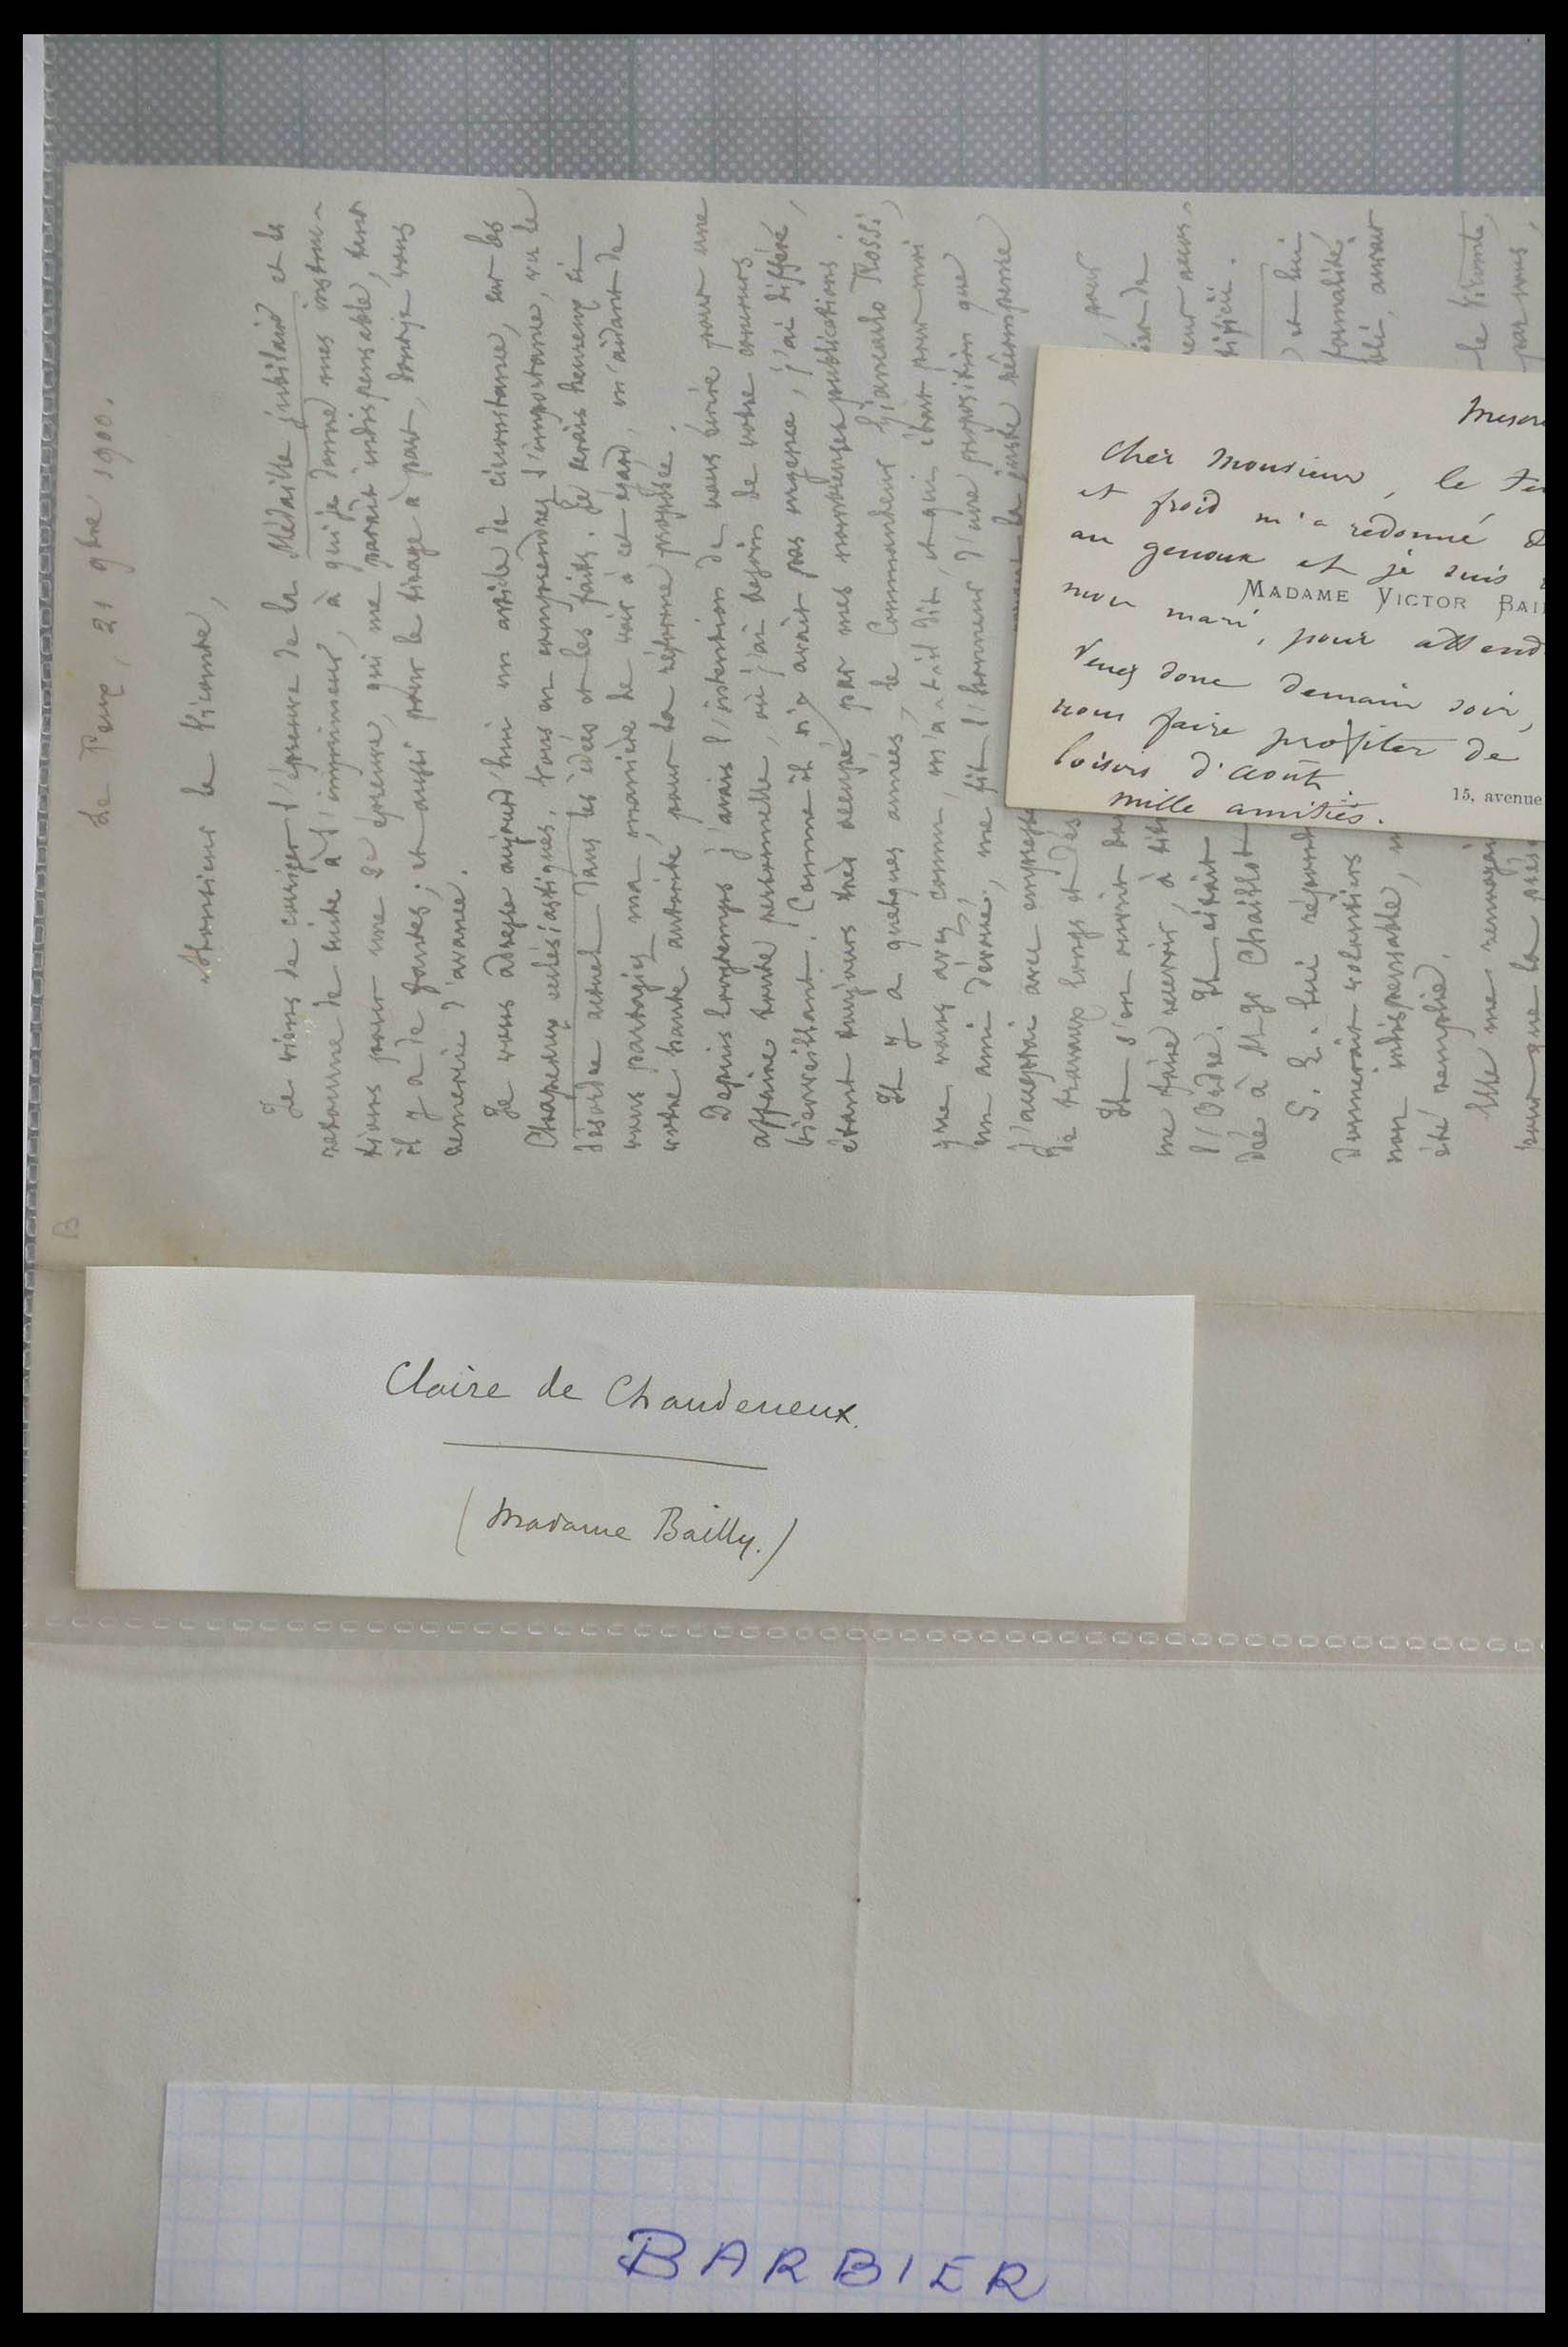 Le Puy, 21 9bre 1900.
Monsieur le Vicomte,
Je viens de corriger l'épreuve de la Médaille jubilaire et la
retourne de suite à l'imprimeur, à qui je donne mes instruc-
tions pour une 2e épreuve, qui me paraît indispensable, tant
il y a de fautes; et aussi pour le tirage à part, dont je vous
remercie d'avance.
Je vous adresse aujourd'hui un article de circonstance, sur les
Chapeaux ecclésiastiques. Vous en comprendrez l'importance, vu le
désordre actuel dans les idées et les faits. Je serais heureux si
vous partagiez ma manière de voir à cet égard, m'aidant de
votre haute autorité, pour la réforme proposée.
Depuis longtemps j'avais l'intention de vous écrire pour une
affaire toute personnelle, où j'ai besoin de votre concours
bienveillant. Comme il n'y avait pas urgence, j'ai différé,
étant toujours très occupé par mes nombreuses publications.
Il y a quelques années, le Commandeur Giancarlo Rossi,
que vous avez connu, m'a-t-il dit, et qui était pour moi
un ami dévoué, me fit l'honneur d'une proposition que
j'acceptai avec
la juste récompense
de travaux longs et
, pour
Il s'en ouvrit
me faire recevoir, à
l'Ordre. Il
dée à Mgr Chaillot
S. E. lui
et lui
donnerait volontiers
formalité,
non indispensable,
aurait
été remplie.
Elle me
le Vicomte,
pour que la
par vous,
B
cher Monsieur, le
et froid m'a redonné
au genoux et je suis
MADAME VICTOR BAI
mon mari, pour attend
Venez donc demain soir,
nous faire profiter de
loisirs d'août.
mille amitiés.
15, avenue
Claire de Chandeneux.
(Madame Bailly.)
BARBIER